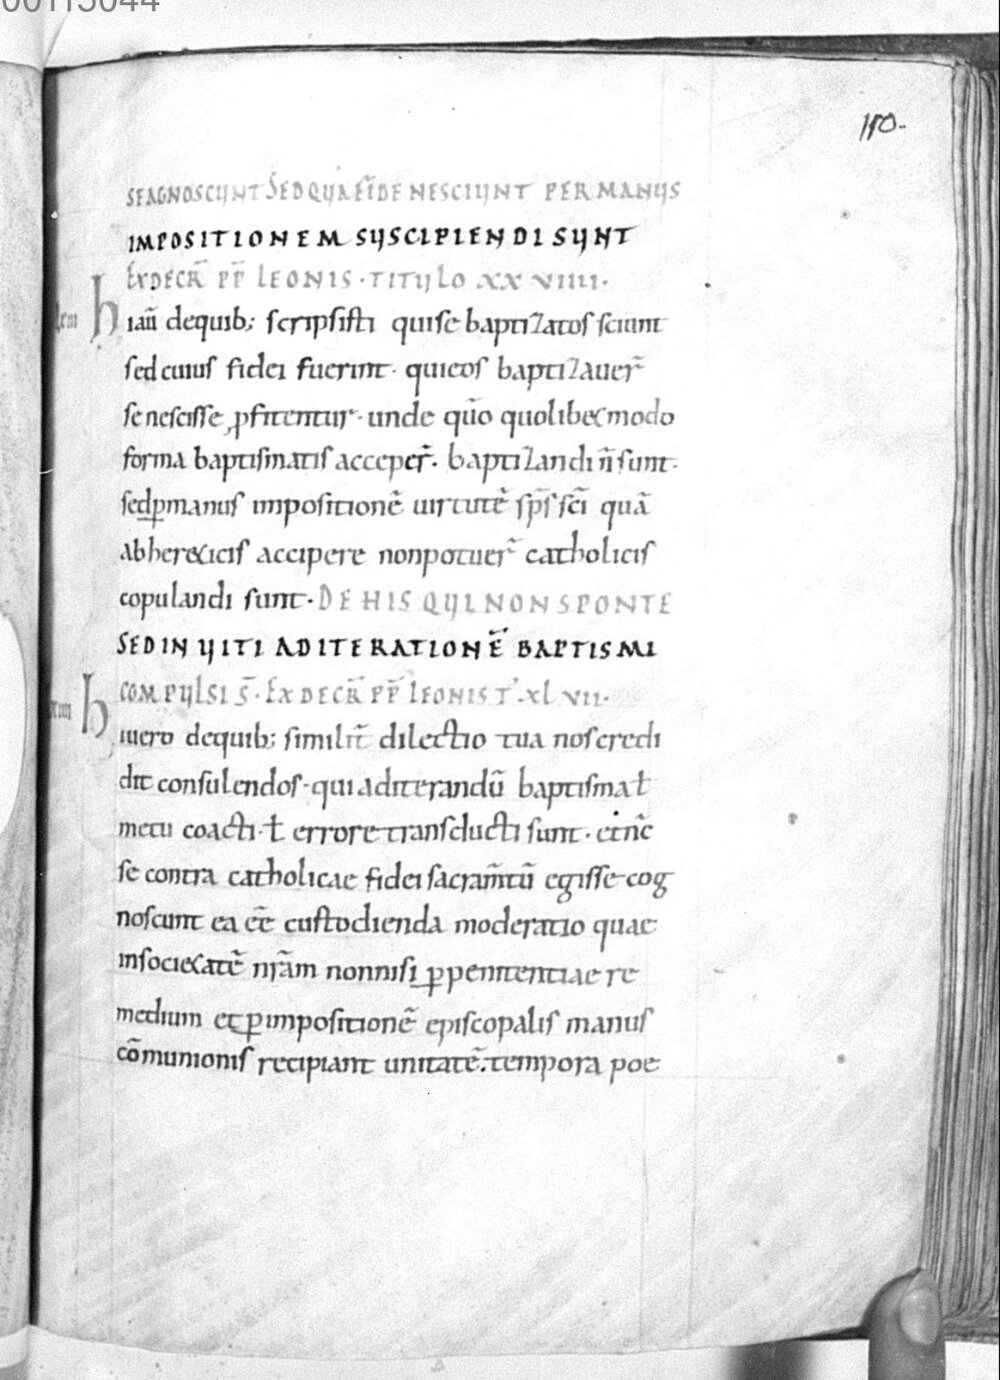 110.
SE AGNOSCUNT SED QUA FIDE NESCIUNT PER MANUS
IMPOSITIONEM SUSCIPIENDI SUNT
EX DECR̄ PP̄ LEONIS · TITULO XXVIIII ·
hi aū dequib; scripsisti quise baptizatos sciunt
sed cuius fidei fuerint · quieos baptizauer̄
se nescisse ꝓfitentur · unde quō quolibet modo
forma baptismatis acceper̄ · baptizandi n̄ sunt ·
sed ꝑ manus impositionē uirtutē sp̄s sc̄i quā
ab hereticis accipere non potuer̄ catholicis
copulandi sunt · DE HIS QUI NON SPONTE
SED INUITI AD ITERATIONĒ BAPTISMI
COMPULSI S̄ · EX DECR̄ PP̄ LEONIS T̄ · XLVII ·
hi uero dequib; similit̄ dilectio tua nos credi
dit consulendos · qui ad iterandū baptisma ł
metu coacti · ł errore transducti sunt · et nc̄
se contra catholicae fidei sacram̄tū egisse cog
noscunt ea eē custodienda moderatio quae
in societatē nr̄am nonnisi ꝑ penitentiae re
medium et ꝑ impositionē episcopalis manus
cōmunionis recipiant unitatē · tempora poe